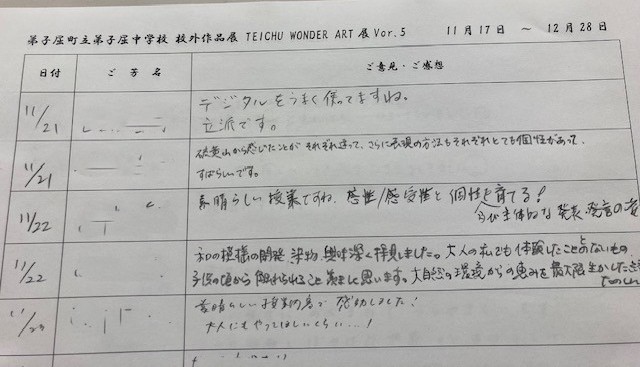 弟子屈町立弟子屈中学校 校外作品展 TEICHU WONDER ART 展 Vor.5 11月17日 ~ 12月28日
日付 ご芳名 ご意見・ご感想
11/21 デジタルをうまく使ってますね。
立派です。
11/21 硫黄山から感じたことが それぞれ違って、さらに表現の方法もそれぞれとても個性があって、
すばらしいです。
11/22 素晴らしい授業ですね、感性/感受性と個性を育てる!
主体的な発表 発言の
11/22 和の模様の開発 染物、興味深く拝見しました。大人の私でも体験したことのないもの
子供の頃から触れられること 羨ましく思います。大自然の環境からの恵みを最大限生かした
たのしい
素晴らしい で 感動しました!
大人にもやってほしいくらい…!